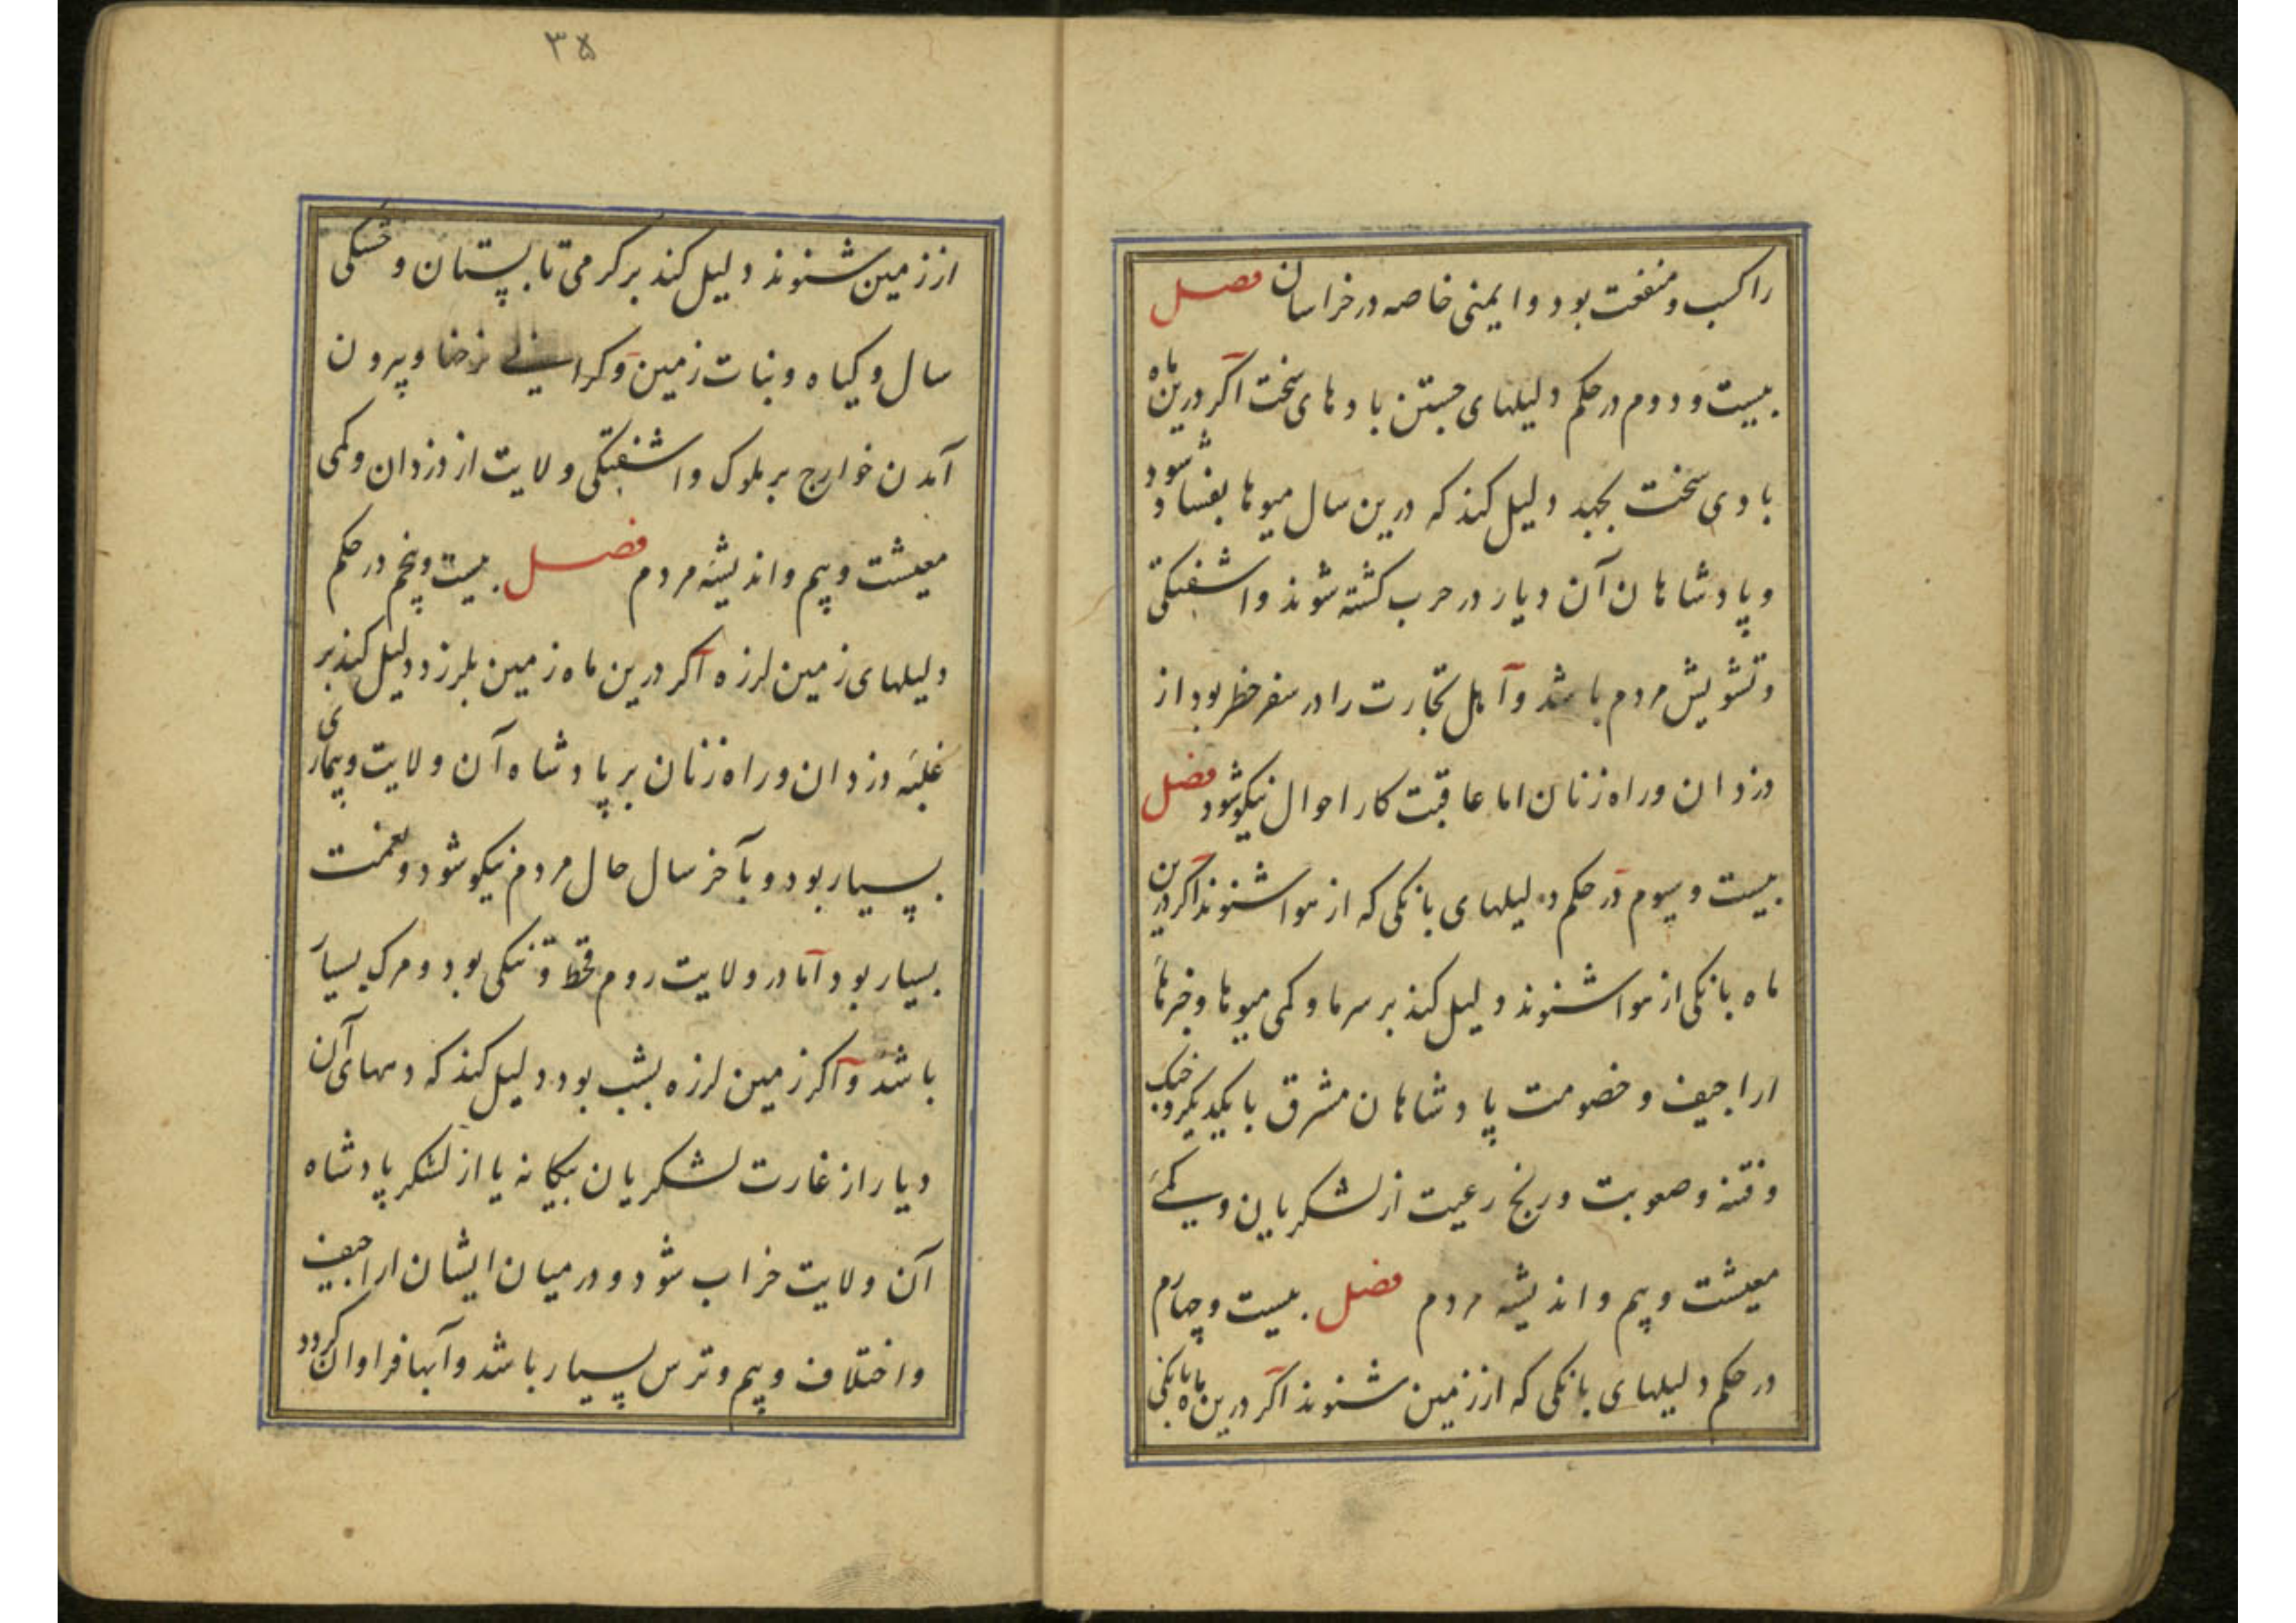 را کسب و منفعت بود و ایمنی خاصه در خراسان فصل
بیست و دوم در حکم دلیلهای جستن بادهای سخت اکر درین ماه
بادی سخت بجهد دلیل کند که درین سال میوها بفساد شود
و پادشاهان آن دیار در حرب کشته شوند و اشفتکی
و تشویش مردم باشد و اهل تجارت را در سفر خطر بود از
دزدان و راه زنان اما عاقبت کار احوال نیکو شود فصل
بیست و سیوم در حکم دلیلهای بانکی که از هوا شنوند اکر درین
ماه بانکی از هوا شنوند دلیل کند بر سرما و کمی میوها و خبرهاء
اراجیف و خصومت پادشاهان مشرق با یکدیکر و جنک
و فتنه و صعوبت و رنج رعیت از لشکریان و کمئ
معیشت و بیم و اندیشه مردم فصل بیست و چهارم
در حکم دلیلهای بانکی که از زمین شنوند اکر درین ماه بانکی
۳۵
از زمین شنوند دلیل کند بر کرمی تابستان و خشکی
سال و کیاه و نبات زمین و کرانی نرخها و بیرون
آمدن خوارج بر ملوک و اشفتکی ولایت از دزدان و کمی
معیشت و بیم و اندیشهٔ مردم فصل بیست و پنجم در حکم
دلیلهای زمین لرزه اکر درین ماه زمین بلرزد دلیل کند بر
غلبهٔ دزدان و راه زنان بر پادشاه آن ولایت و بیماری
بسیار بود و بآخر سال حال مردم نیکو شود و نعمت
بسیار بود اما در ولایت روم قحط و تنکی بود و مرک بسیار
باشد و اکر زمین لرزه بشب بود دلیل کند که دههای آن
دیار از غارت لشکریان بیکانه یا از لشکر پادشاه
آن ولایت خراب شود و در میان ایشان اراجیف
و اختلاف و بیم و ترس بسیار باشد و آبها فراوان کردد